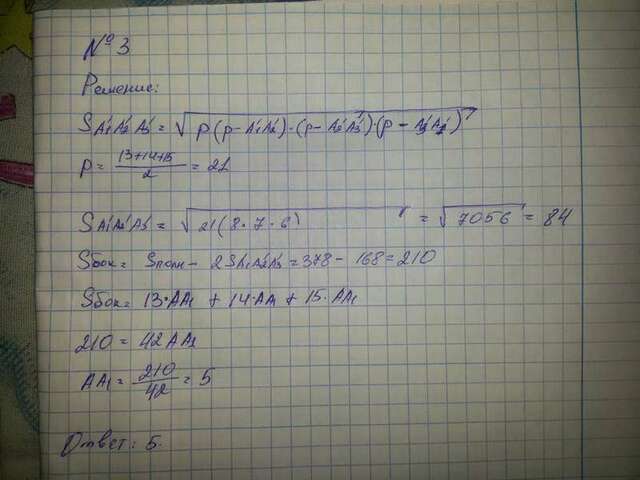 №3
Решение:
S A₁'A₂'A₃' = √p(p - A₁'A₂')·(p - A₂'A₃')·(p - A₃'A₁')
p = (13+14+15)/2 = 21
S A₁'A₂'A₃' = √21(8·7·6) = √7056 = 84
Sбок = Sполн - 2S A₁'A₂'A₃' = 378 - 168 = 210
Sбок = 13·AA₁ + 14·AA₁ + 15·AA₁
210 = 42AA₁
AA₁ = 210/42 = 5
Ответ: 5.